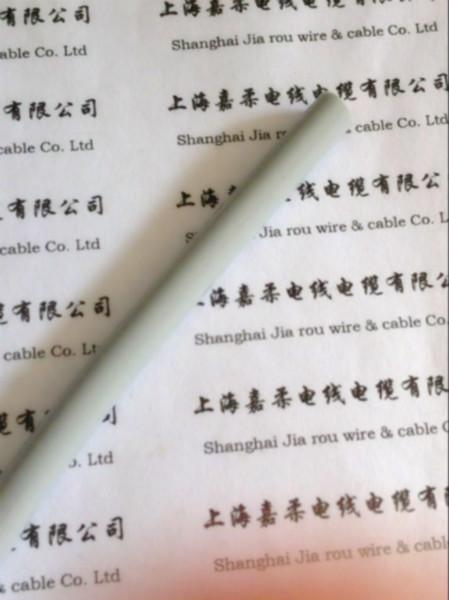 有限公司 上海嘉柔电线电缆有限公司
cable Co. Ltd Shanghai Jia rou wire & cable Co. Ltd
有限公司 上海嘉柔电线电缆有限公司
cable Co. Ltd Shanghai Jia cable Co. Ltd
有限公司 上海 线电缆有限公
cable Co. Ltd Jia rou wire & cable Co.
有限公司 海嘉柔电线电缆有限
cable Co. Shanghai Jia rou wire & cable Co.
有 上海嘉柔电线电缆有限
Ltd Shanghai Jia rou wire & cable
有限公司 上海嘉柔电线电缆有
& cable Co. Ltd Shanghai Jia rou wire & cabl